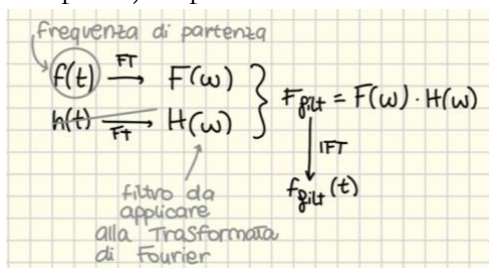 frequenza di partenza
f(t) FT → F(ω)
h(t) FT → H(ω)
} F_filt = F(ω) · H(ω)
↓ IFT
f_filt(t)
filtro da
applicare
alla Trasformata
di Fourier